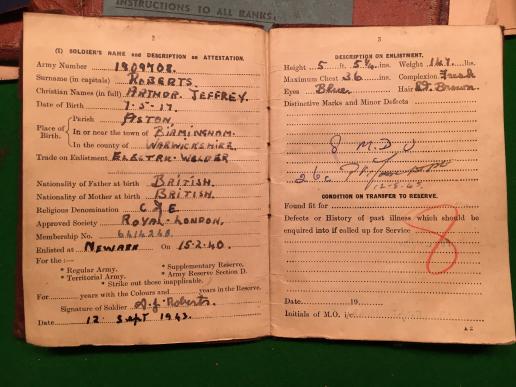 INSTRUCTIONS TO ALL RANKS.
2
(I) SOLDIER'S NAME AND DESCRIPTION ON ATTESTATION.
Army Number 1809708.
Surname (in capitals) ROBERTS.
Christian Names (in full) ARTHUR JEFFREY.
Date of Birth 7.5.17.
Place of Birth.
Parish ASTON,
In or near the town of BIRMINGHAM.
In the county of WARWICKSHIRE.
Trade on Enlistment ELECTRIC-WELDER
Nationality of Father at birth BRITISH.
Nationality of Mother at birth BRITISH.
Religious Denomination C of E
Approved Society ROYAL-LONDON.
Membership No. 6414248.
Enlisted at NEWARK On 15.2.40.
For the :—
* Regular Army. * Supplementary Reserve.
* Territorial Army. * Army Reserve Section D.
* Strike out those inapplicable.
For years with the Colours and years in the Reserve.
Signature of Soldier A.J. Roberts.
Date 12. Sept 1943.
3
DESCRIPTION ON ENLISTMENT.
Height 5 ft. 5¾ ins. Weight 147 lbs.
Maximum Chest 36 ins. Complexion Fresh
Eyes Blue Hair Dk. Brown
Distinctive Marks and Minor Defects
8 M.D.U
26c
12-8-43
CONDITION ON TRANSFER TO RESERVE.
Found fit for
Defects or History of past illness which should
be enquired into if called up for Service
8
Date 19
Initials of M.O. i/c
A 2